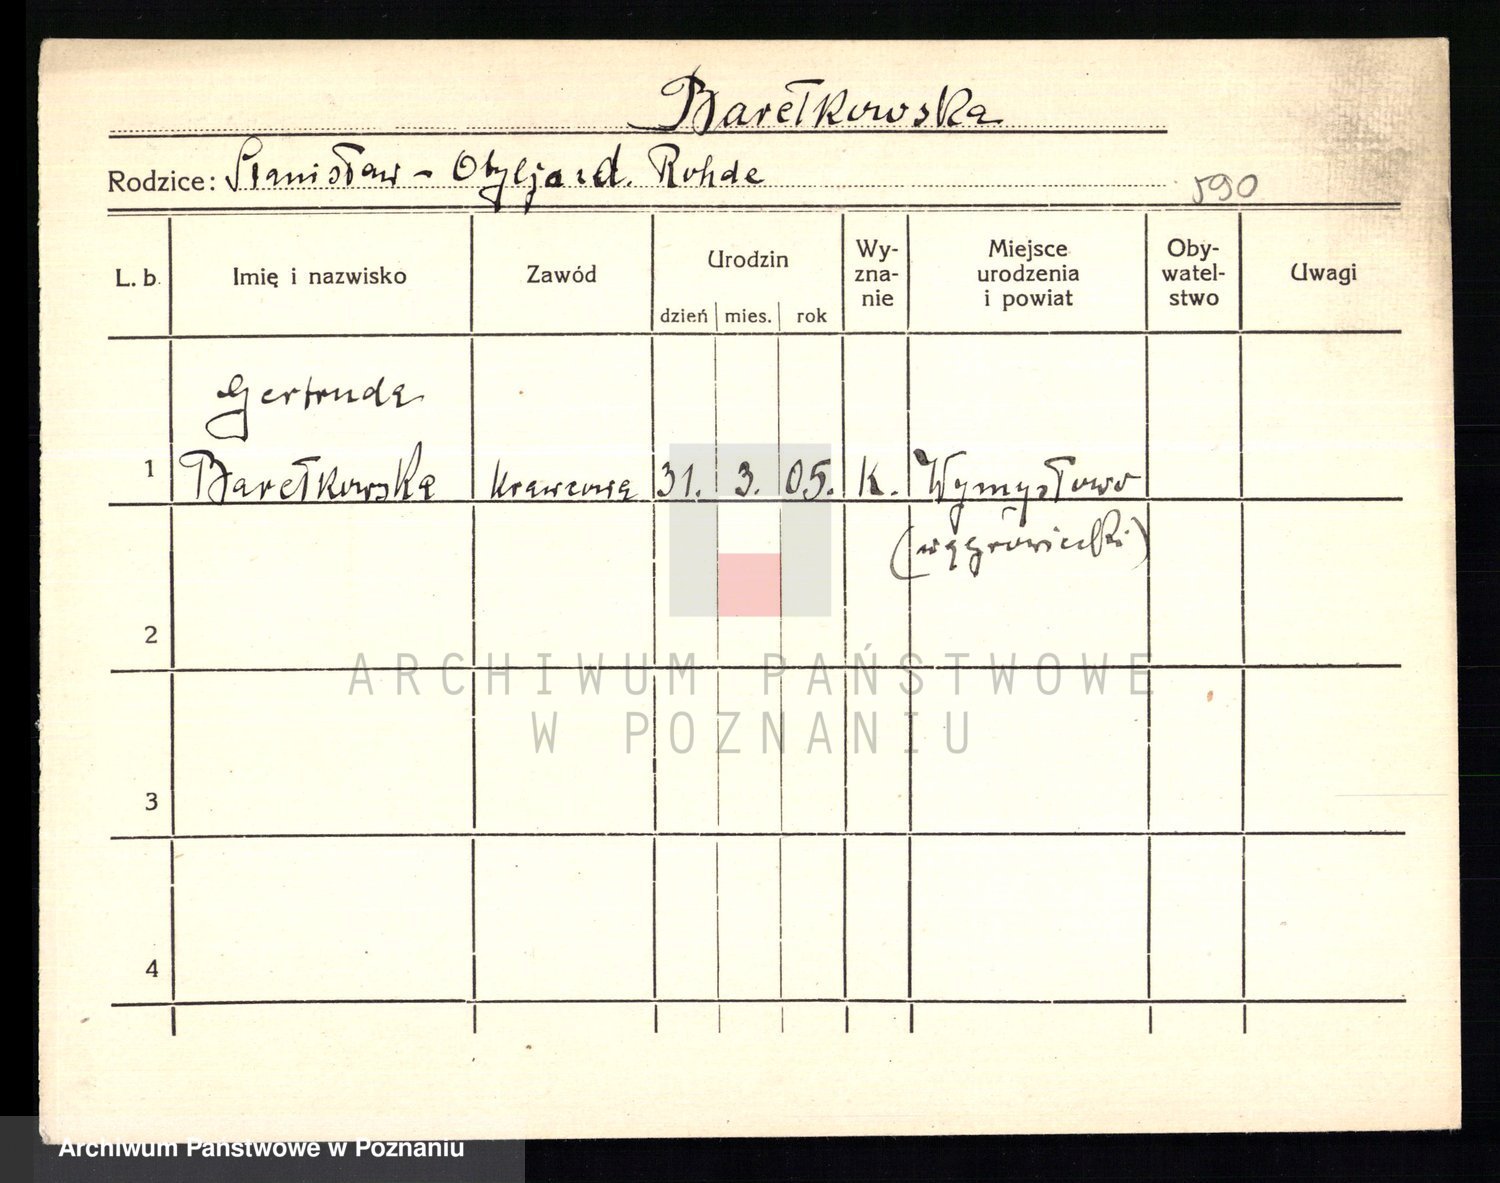 Barełkowska
Rodzice: Stanisław - Otylja z d. Rohde
590
L. b. Imię i nazwisko Zawód Urodzin Wyznanie Miejsce urodzenia i powiat Obywatelstwo Uwagi
dzień mies. rok
Gertruda
1 Barełkowska krawcowa 31. 3. 05. k. Wymysłowo
(wągrowiecki)
2
ARCHIWUM PAŃSTWOWE
W POZNANIU
3
4
Archiwum Państwowe w Poznaniu